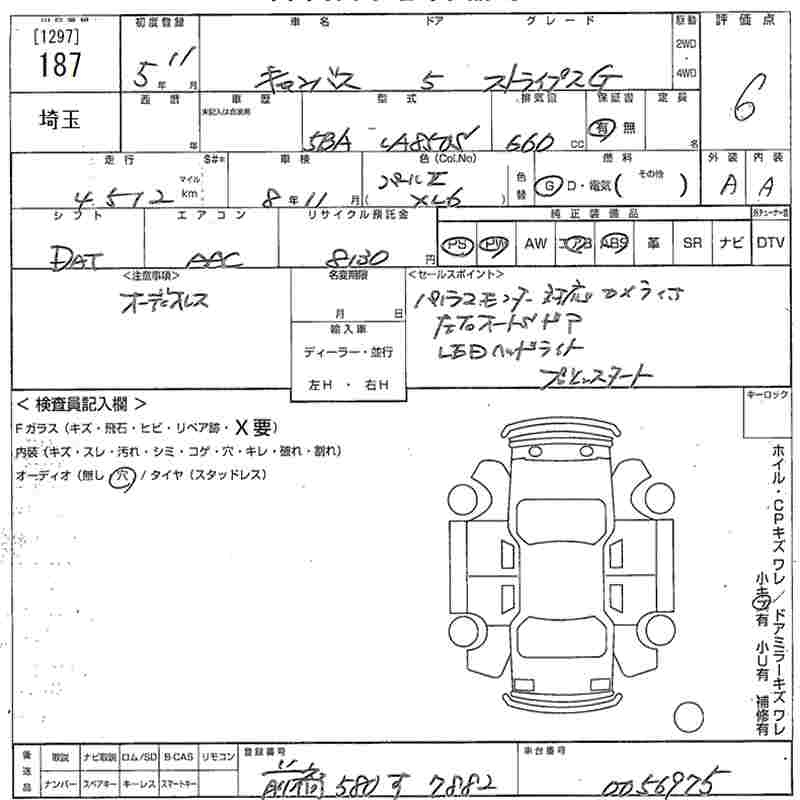 [1297]
187
埼玉
初度登録
5年 11月
車名 ドア グレード
キャンバス 5 ストライプスG
駆動
2WD
・
4WD
評価点
6
西暦
年
車歴
未記入は自家用
型式
5BA LA850S
排気量
660 cc
保証書
有 無
定員
名
走行
4512
マイル
km
S#*
車検
8年 11月
色(Col.No)
パールⅡ
( X26 )
色替
燃料
G D・電気( その他 )
外装
A
内装
A
シフト
DAT
エアコン
AAC
リサイクル預託金
8130円
純正装備品
PS PW AW エアB ABS 革 SR ナビ DTV
<注意事項>
オーディオレス
名変期限
月 日
輸入車
ディーラー・並行
左H ・ 右H
<セールスポイント>
パノラマモニター対応カメラ付
左右オートSドア
LEDヘッドライト
プッシュスタート
< 検査員記入欄 >
Fガラス(キズ・飛石・ヒビ・リペア跡・X要)
内装(キズ・スレ・汚れ・シミ・コゲ・穴・キレ・破れ・割れ)
オーディオ(無し 穴)/タイヤ(スタッドレス)
キーロック
ホイル・CPキズ ワレ/ドアミラーキズ ワレ
小キズ有 小U有 補修有
後送品
取説 ナビ取説 ロム/SD B-CAS リモコン
ナンバー スペアキー キーレス スマートキー
登録番号
前橋 580 す 7882
車台番号
0056975